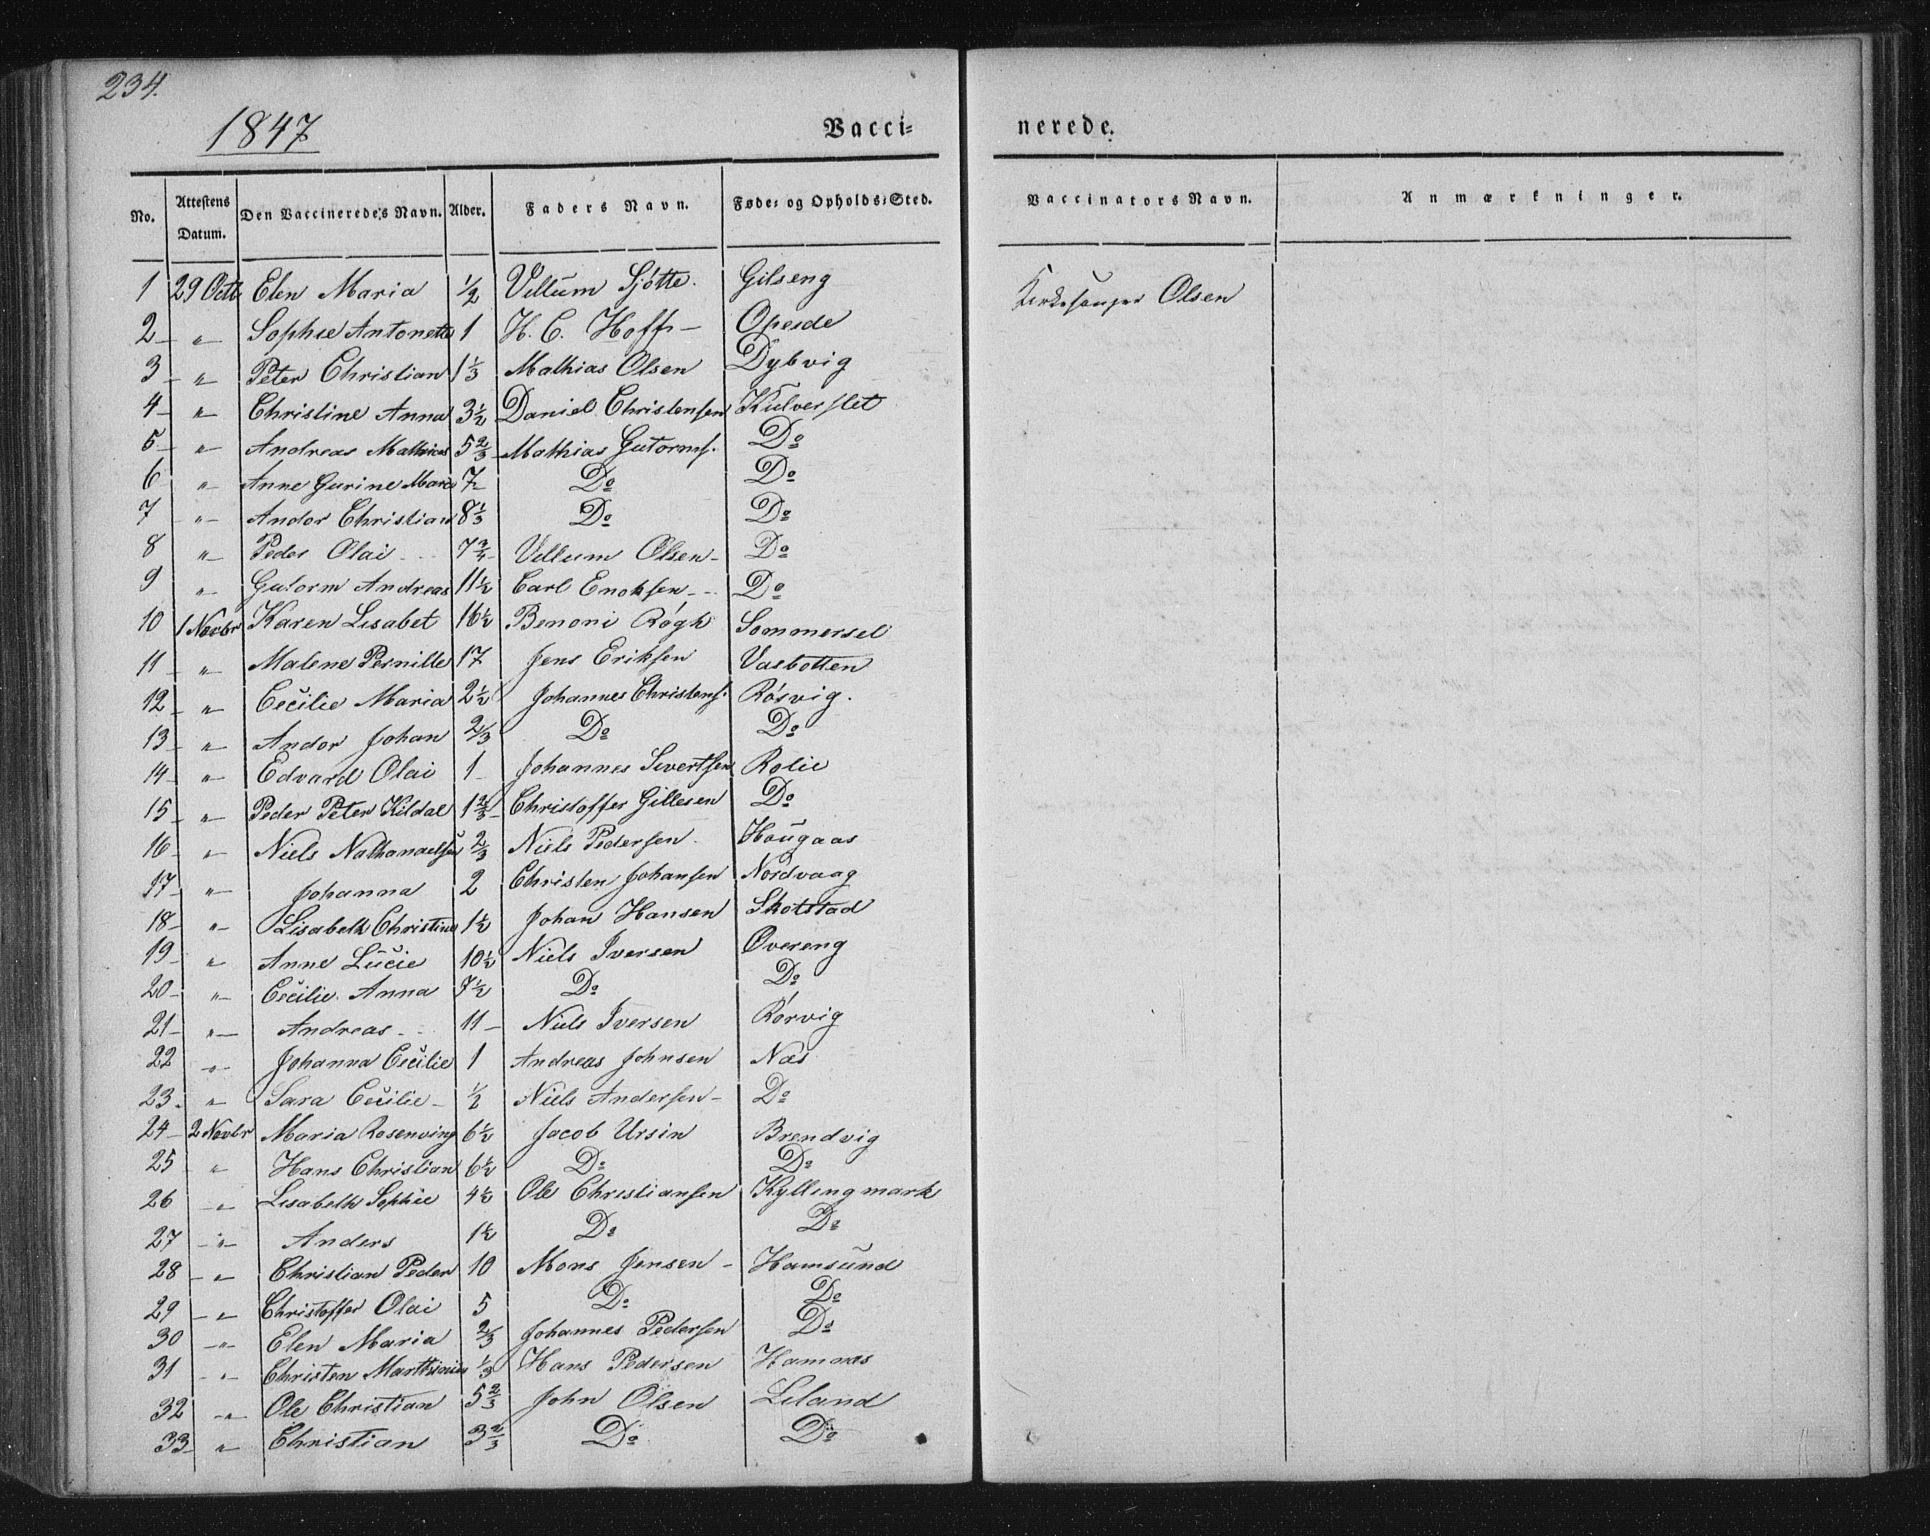 234.
1847
Vacci- nerede.
No. Attestens Datum. Den Vaccineredes Navn. Alder. Faders Navn. Føde- og Opholds-Sted. Vaccinators Navn. Anmærkninger.
1 29 Octb Elen Maria 1/2 Villum Sjøtte. Gilseng Kirkesanger Olsen
2 " Sophie Antonette 1 H. C. Hoff - Opeide
3 " Peter Christian 1 1/3 Mathias Olsen Dybvig
4 " Christine Anna 3 1/2 Daniel Christensen Kulverslet
5 " Andreas Mathias 5 2/3 Mathias Gutorms. Do
6 " Anne Gurine Marie 7 Do Do
7 " Andor Christian 8 1/3 Do Do
8 " Peder Olai 7 3/4 Villum Olsen - Do
9 " Gutorm Andreas 11 1/2 Carl Enoksen - Do
10 1 Novbr Karen Lisabet 16 1/2 Benoni Røgh Sommersel
11 " Malene Pernille 17 Jens Eriksen Vasbotten
12 " Cecilie Maria 2 1/2 Johannes Christens. Røsvig.
13 " Andor Johan 2/3 Do Do
14 " Edvard Olai 1 Johannes Sivertsen Rolie
15 " Peder Peter Kildal 1 2/3 Christoffer Gillesen Do
16 " Niels Nathanaelsen 2/3 Niels Pedersen. Hougaas
17 " Johanna 2 Christen Johansen Nordvaag
18 " Lisabeth Christine 1 1/2 Johan Hansen Skotstad
19 " Anne Lucie 10 1/2 Niels Iversen Overeng
20 " Cecilie Anna 7 1/2 Do Do
21 " Andreas 11 Niels Iversen Rørvig
22 " Johanna Cecilie 1 Andreas Johnsen Næs
23 " Sara Cecilie 1/2 Niels Andersen - Do
24 2 Novbr Maria Rosenving 6 1/2 Jacob Ursin Brendvig
25 " Hans Christian 6 1/2 Do Do
26 " Lisabeth Sophie 4 1/2 Ole Christiansen Kyllingmark
27 " Anders 1 1/2 Do Do
28 " Christian Peder 10 Mons Jensen - Hamsund
29 " Christoffer Olai 5 Do Do
30 " Elen Maria 2/3 Johannes Pedersen Do
31 " Christen Marthinius 1/3 Hans Pedersen Hamnæs
32 " Ole Christian 5 2/3 John Olsen Leland
33 " Christian 3 2/3 Do Do